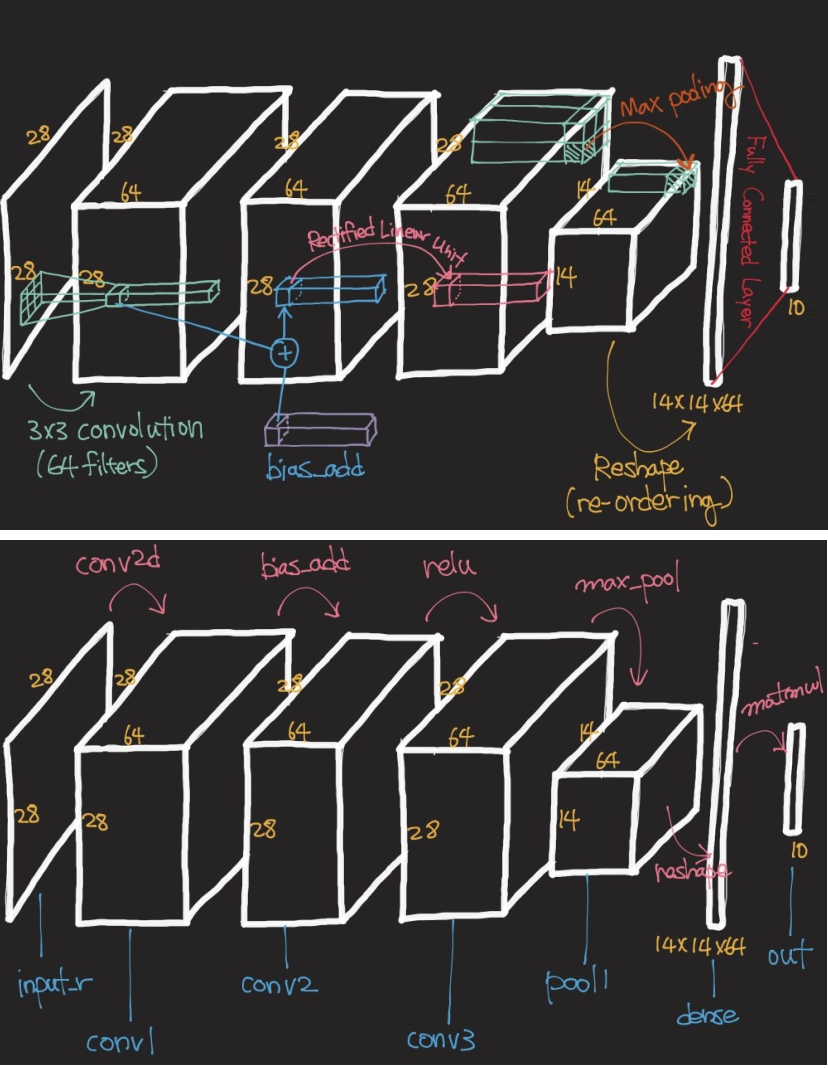 Max pooling
28
28
28
28
64
64
64
14
64
Rectified Linear Unit
Fully Connected Layer
28
28
28
28
14
10
+
14x14x64
3x3 convolution
(64 filters)
bias_add
Reshape
(re-ordering)
conv2d
bias_add
relu
max_pool
28
28
28
28
matmul
64
64
64
14
64
28
28
28
28
14
10
reshape
14x14x64
out
input_r
conv2
pool1
dense
conv1
conv3